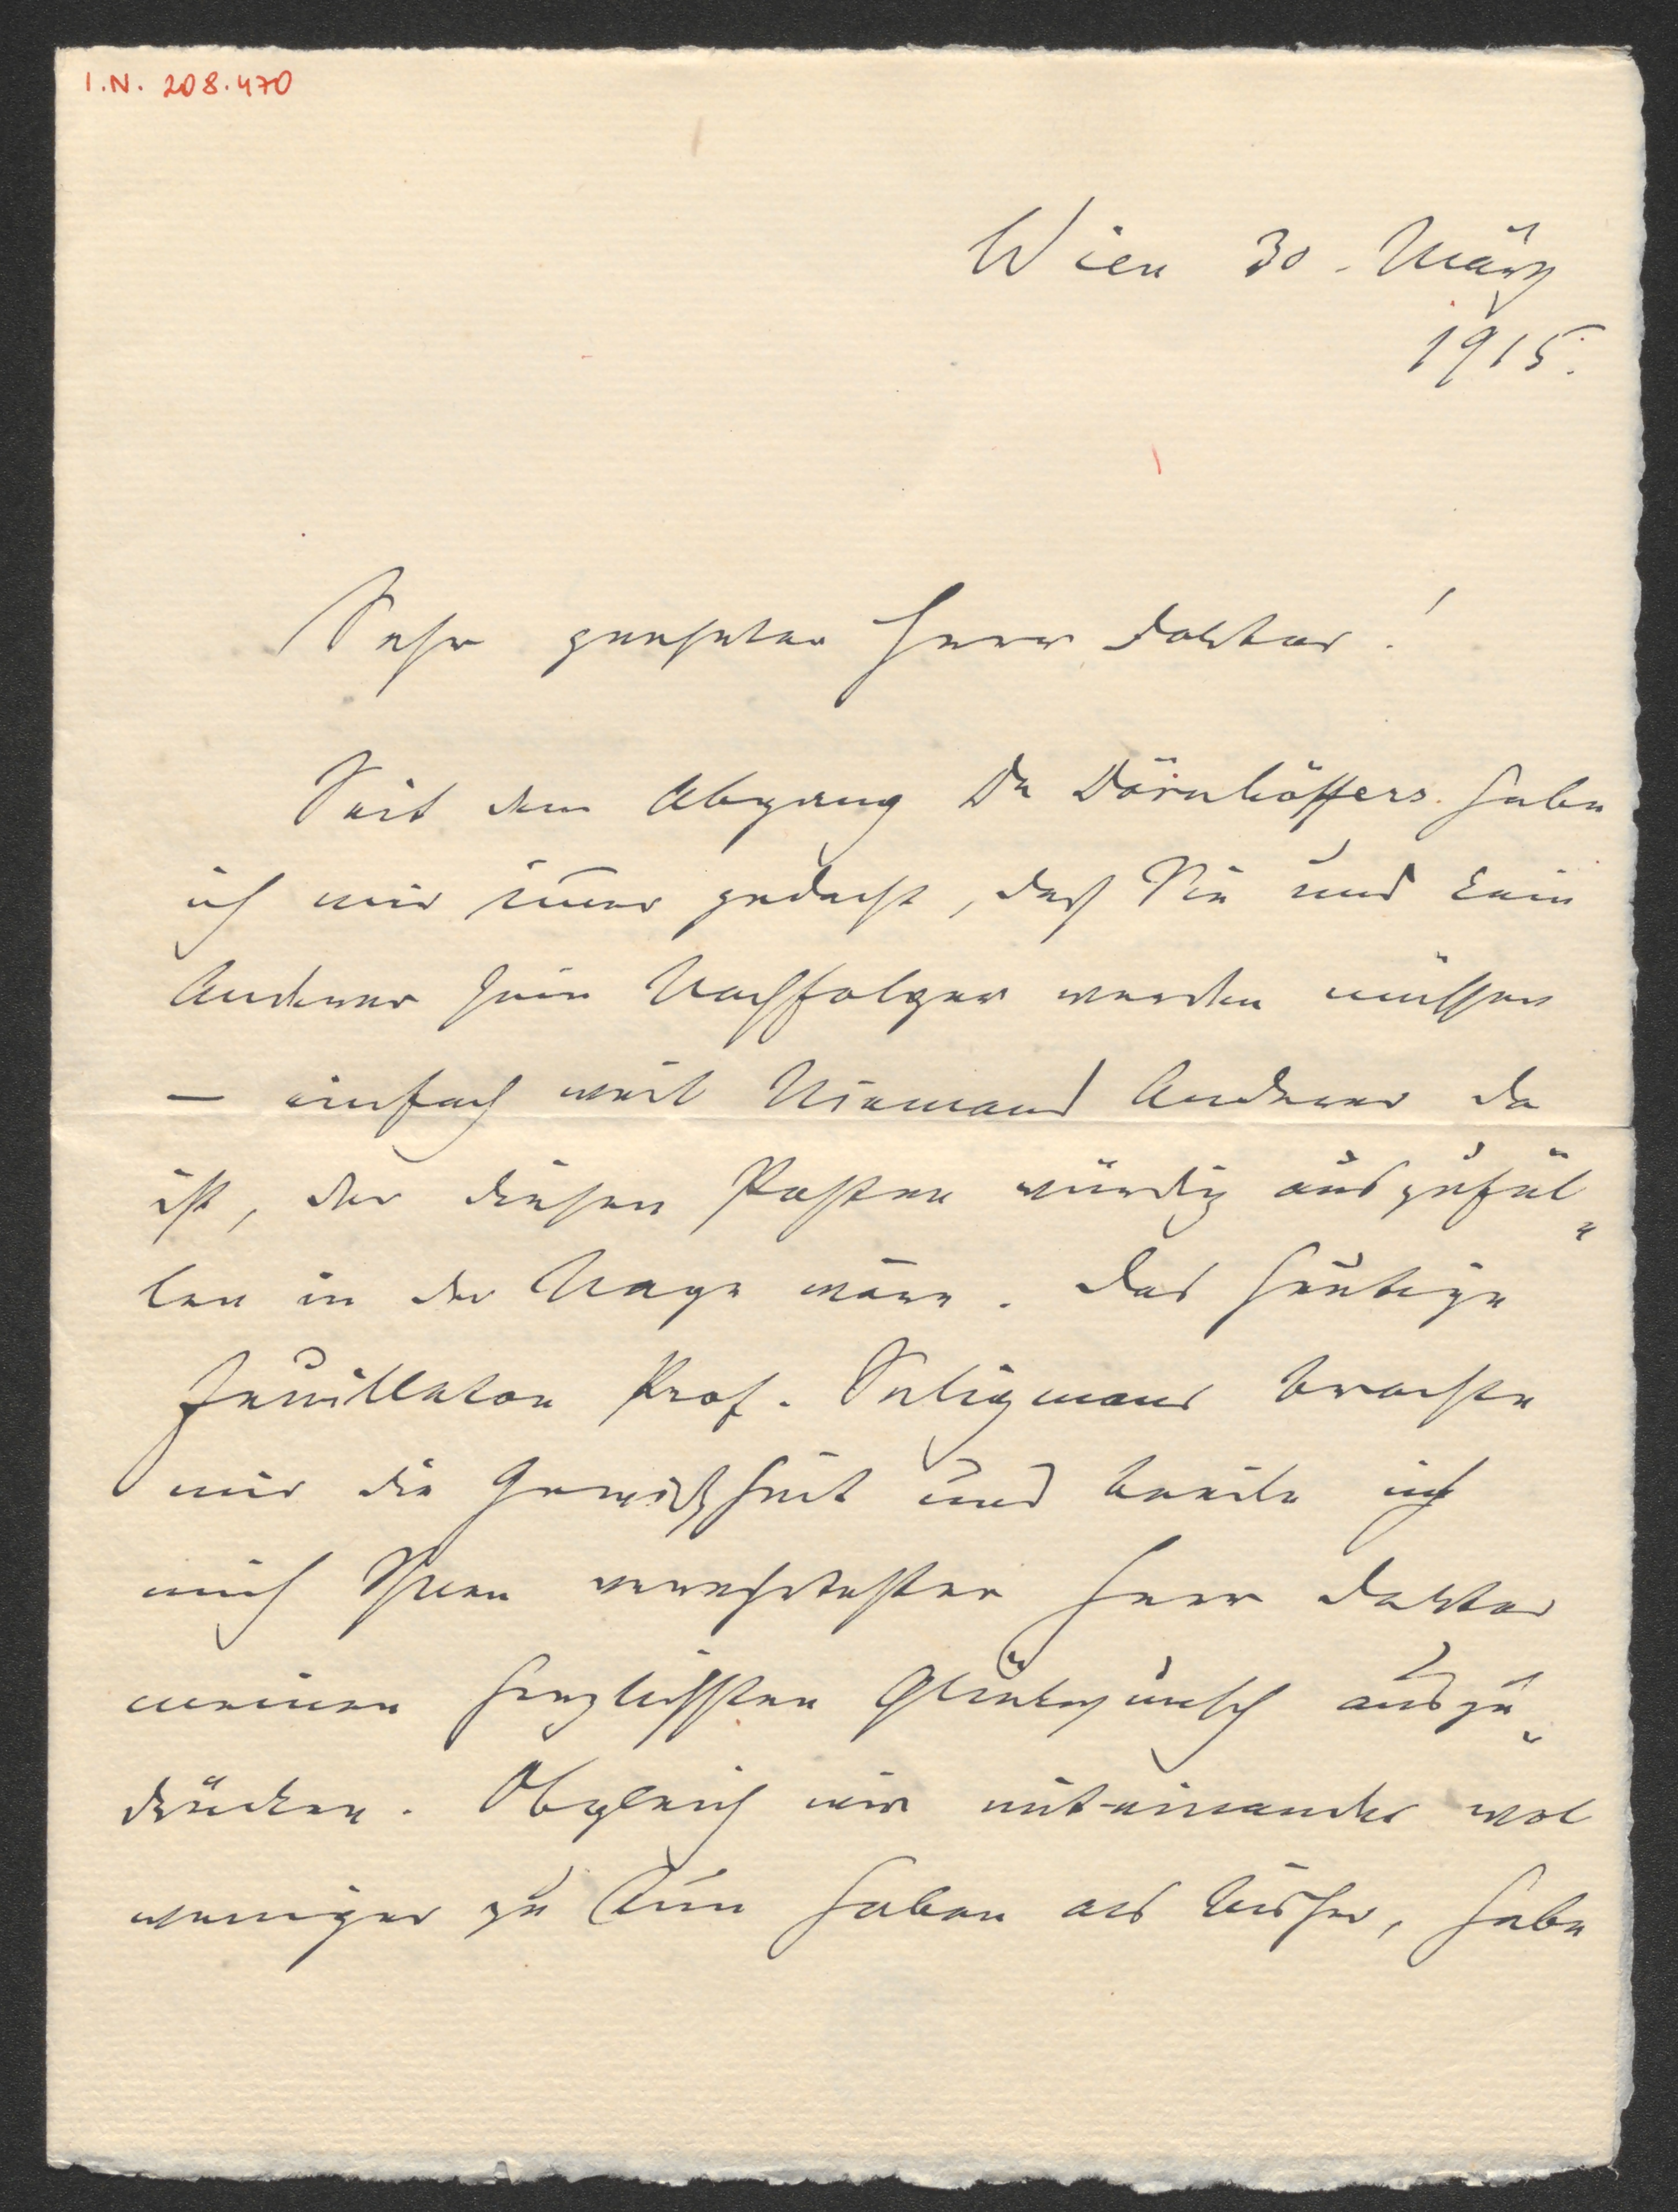 I.N. 208.470
Wien 30. März
1915.
Sehr geehrter Herr Doktor!
Seit dem Abgang Dr Dörnhöffers habe
ich mir immer gedacht, daß Sie und kein
Anderer sein Nachfolger werden müssen
— einfach weil Niemand Anderer da
ist, der diesen Posten würdig auszufül„
len in der Lage wäre. Das heutige
Feuilleton Prof. Seligmans brachte
mir die Gewißheit und beeile ich
mich Ihnen verehrtester Herr Doktor
meinen herzlichsten Glückwunsch auszu„
drücken. Obgleich wir miteinander wol
weniger zu tun haben als bisher, habe